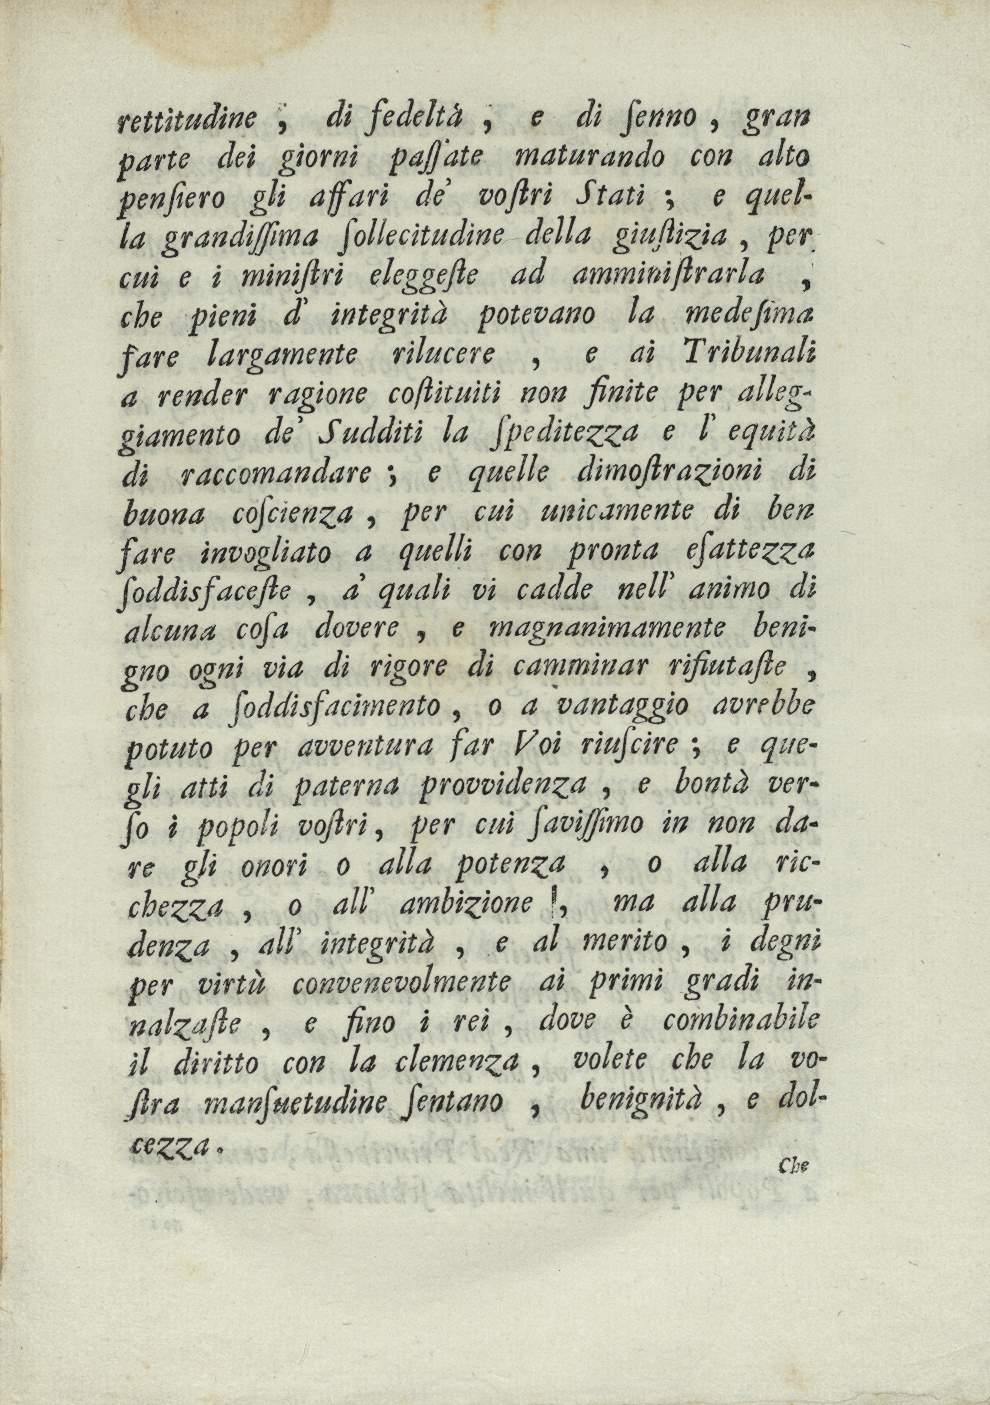 rettitudine , di fedeltà , e di ſenno , gran
parte dei giorni paſſate maturando con alto
penſiero gli affari de' voſtri Stati ; e quel-
la grandiſſima ſollecitudine della giuſtizia , per
cui e i miniſtri eleggeſte ad amminiſtrarla ,
che pieni d' integrità potevano la medeſima
fare largamente rilucere , e ai Tribunali
a render ragione coſtituiti non finite per alleg-
giamento de' Sudditi la ſpeditezza e l' equità
di raccomandare ; e quelle dimoſtrazioni di
buona coſcienza , per cui unicamente di ben
fare invogliato a quelli con pronta eſattezza
ſoddisfaceſte , a' quali vi cadde nell' animo di
alcuna coſa dovere , e magnanimamente beni-
gno ogni via di rigore di camminar rifiutaſte ,
che a ſoddisfacimento , o a vantaggio avrebbe
potuto per avventura far Voi riuſcire ; e que-
gli atti di paterna provvidenza , e bontà ver-
ſo i popoli voſtri , per cui ſaviſſimo in non da-
re gli onori o alla potenza , o alla ric-
chezza , o all' ambizione , ma alla pru-
denza , all' integrità , e al merito , i degni
per virtù convenevolmente ai primi gradi in-
nalzaſte , e fino i rei , dove è combinabile
il diritto con la clemenza , volete che la vo-
ſtra manſuetudine ſentano , benignità , e dol-
cezza .
Che